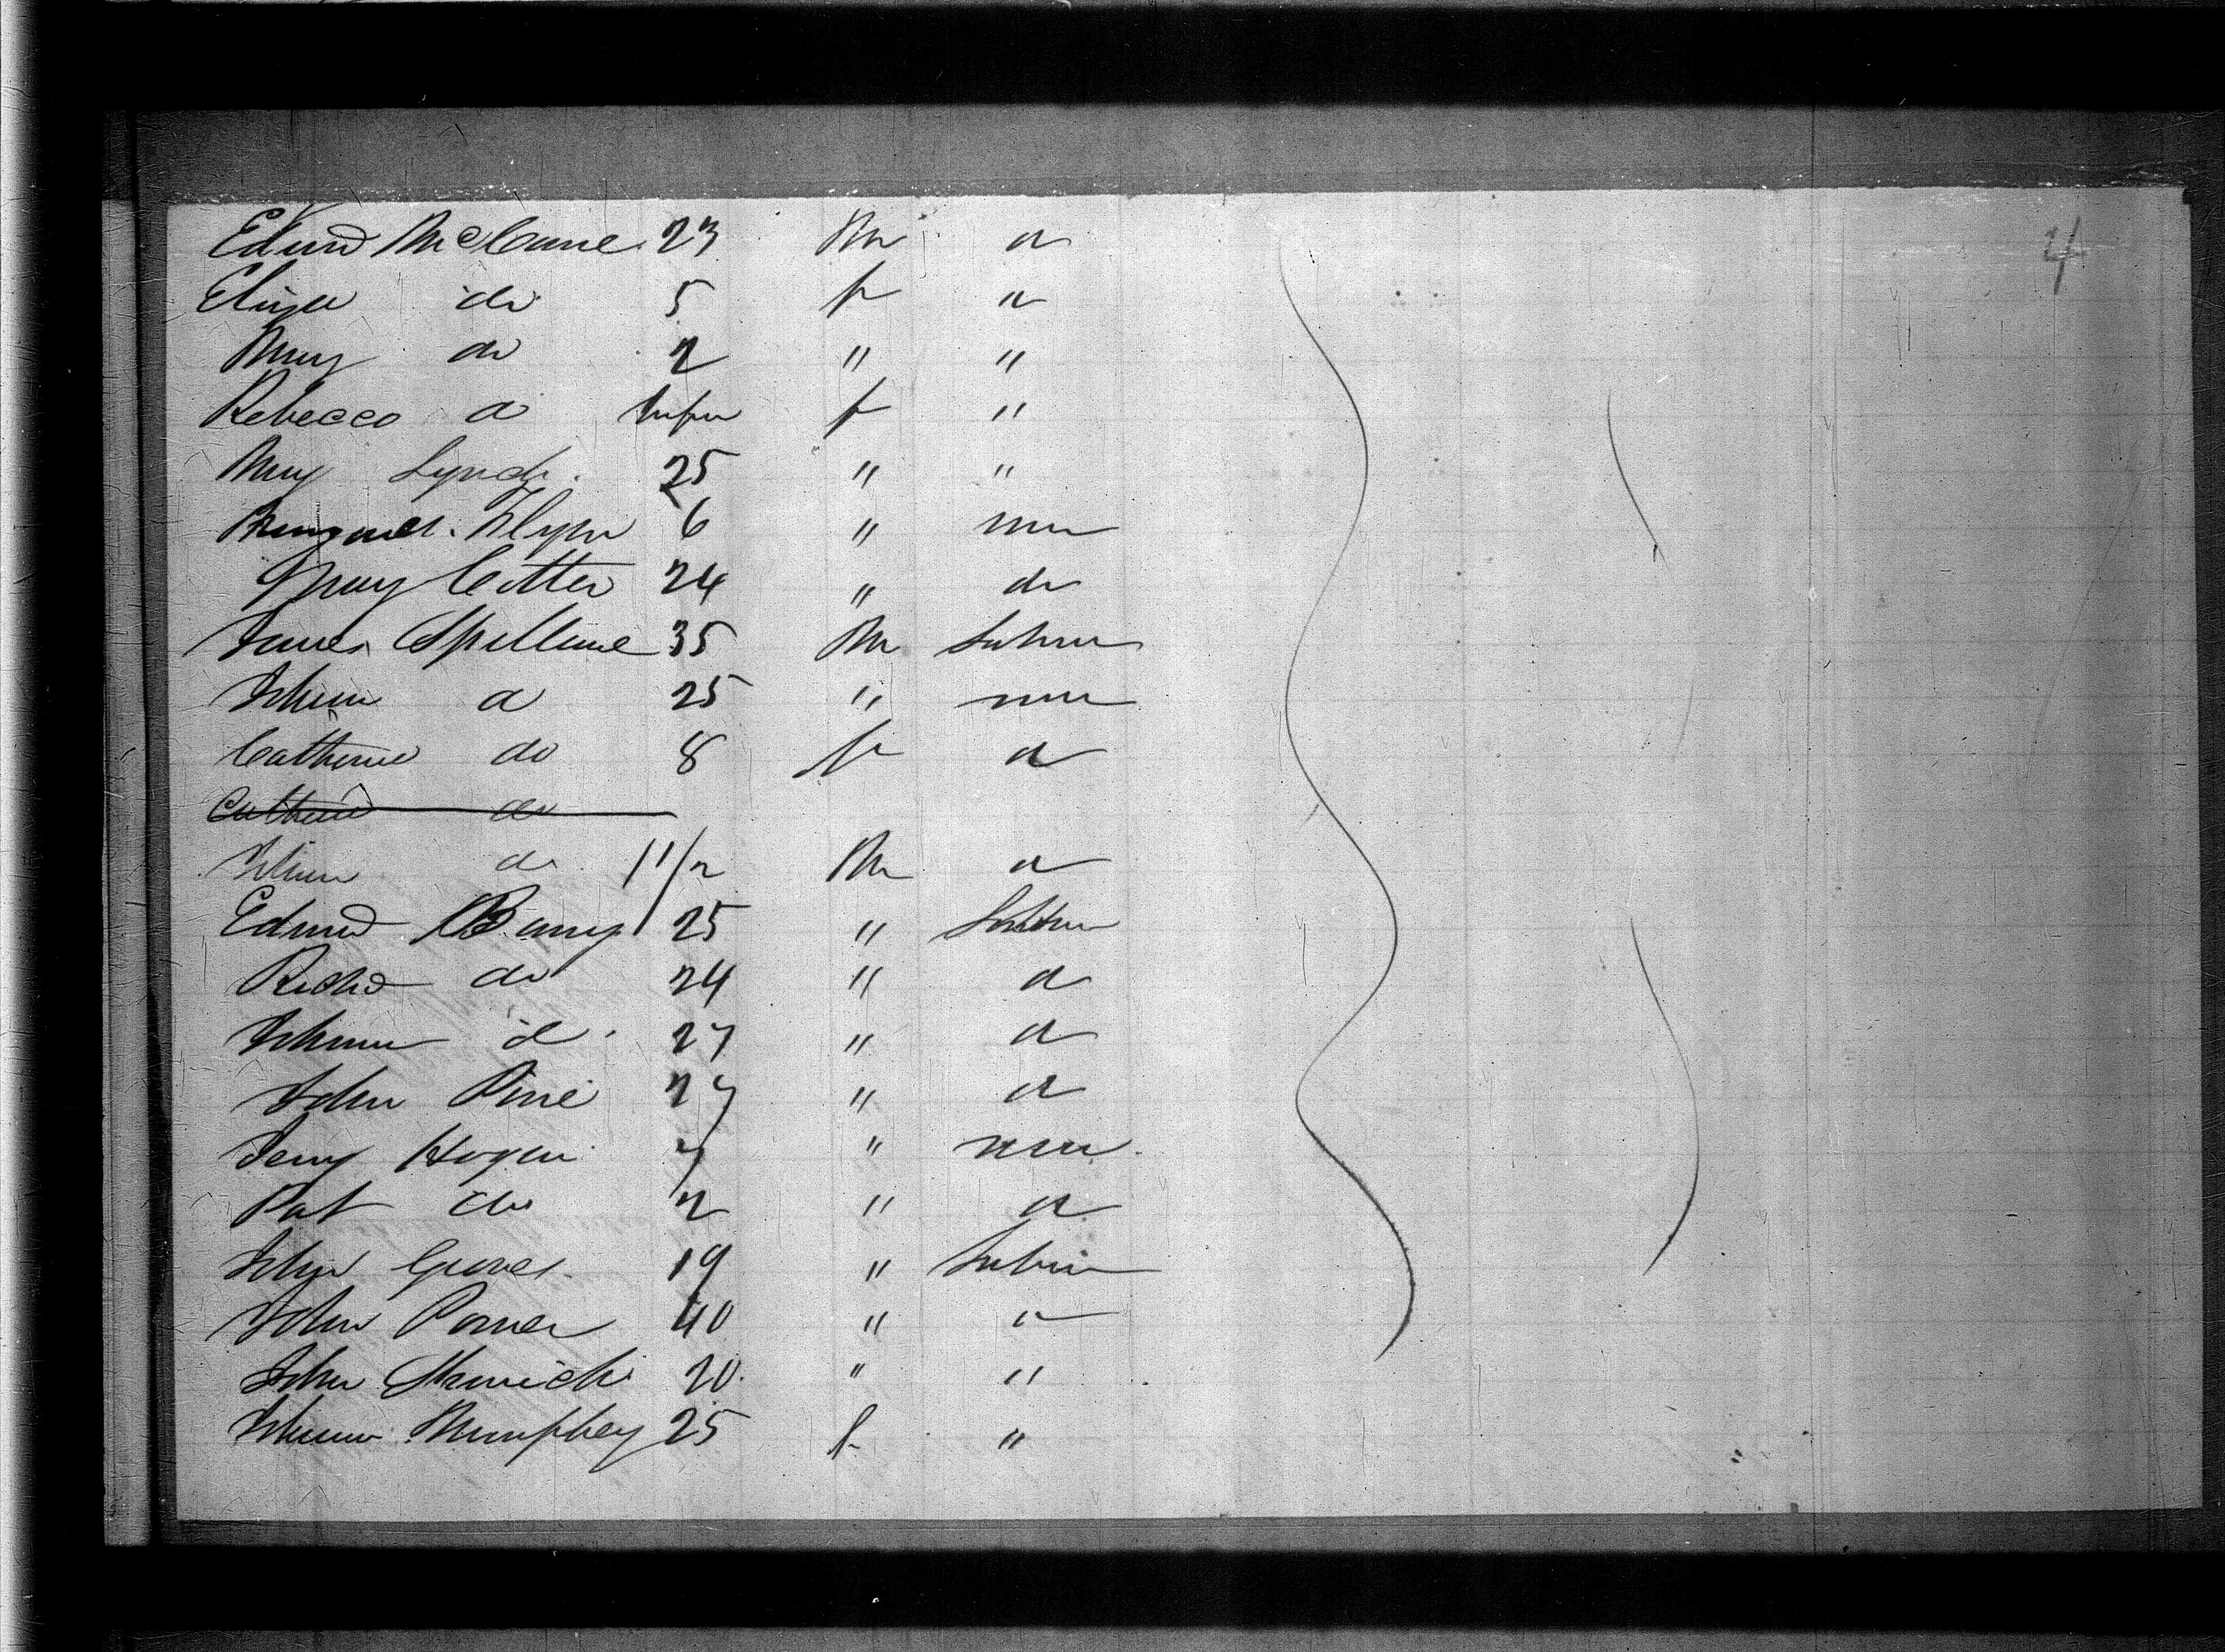 Edwd McCune 23 M do
4
Eliza do 5 f do
Mary do 2 " "
Rebecca do Infn f "
Mary Lynch 25 " "
Margaret Flynn 6 " none
Mary Cotter 24 " do
James Spillane 35 M Labour
Johanna do 25 " none
Catherine do 8 f do
Catherine do
do 1 1/2 M do
Edmd Barry 25 " Labour
Richd do 24 " do
do 27 " do
John Pine 27 " do
Jerry Hogan 7 " none
Pat do 2 " do
John Graves 19 " Labour
John Power 40 " "
John 20 " "
Murphey 25 f "